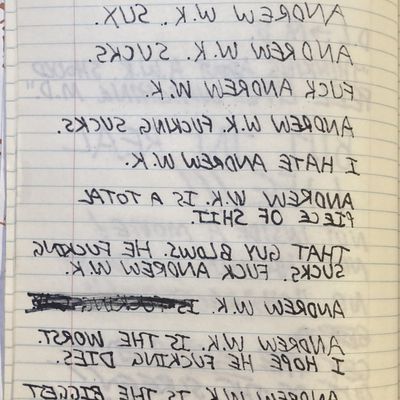 ANDREW W.K. SUX.
ANDREW W.K. SUCKS.
FUCK ANDREW W.K.
ANDREW W.K. FUCKING SUCKS.
I HATE ANDREW W.K.
ANDREW W.K. IS A TOTAL
PIECE OF SHIT.
THAT GUY BLOWS. HE FUCKING
SUCKS. FUCK ANDREW W.K.
ANDREW W.K. IS
ANDREW W.K. IS THE WORST.
I HOPE HE FUCKING DIES.
ANDREW W.K. IS THE BIGGEST